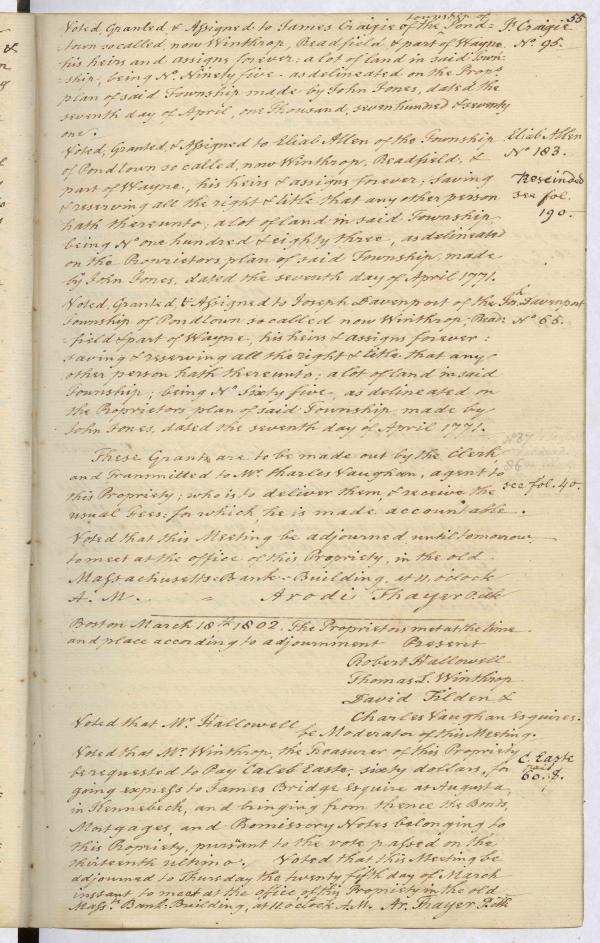 55
township of
Voted, Granted, & Assigned to James Craigie of the Pond=
town so called, now Winthrop, Readfield & part of Wayne,
his heirs and assigns forever: a lot of land in said Town-
ship, being No. Ninety five - as delineated on the Prop.s
plan of said Township made by John Jones, dated the
seventh day of April, one Thousand, seven hundred & seventy
one.
Js. Craigie
No. 95.
Voted, Granted, & Assigned to Eliab Allen of the Township
of Pondtown so called, now Winthrop, Readfield, &
part of Wayne, his heirs & assigns forever; saving
& reserving all the right & title that any other person
hath thereunto; a lot of land in said Township,
being No. one hundred & eighty three, as delineated
on the Proprietors plan of said Township, made
by John Jones, dated the seventh day of April 1771.
Eliab Allen
No. 183.
Rescinded
see fol.
190.
Voted, Granted, & Assigned to Joseph Davenport of the
Township of Pondtown so called now Winthrop, Read=
=field & part of Wayne, his heirs & assigns forever:
saving & reserving all the right & title that any
other person hath thereunto; a lot of land in said
Township; being No. Sixty five, as delineated on
the Proprietors plan of said Township made by
John Jones, dated the seventh day of April 1771.
Jh. Davenport
No. 65.
These Grants are to be made out by the Clerk,
and Transmitted to Mr. Charles Vaughan, agent to
this Propriety; who is to deliver them & receive the
usual Fees: for which he is made accountable.
see fol. 40.
Voted that this Meeting be adjourned until tomorrow
to meet at the office of this Propriety, in the old
Massachusetts-Bank-Building, at 11, oclock
A. M. " Arodi Thayer P. Clk
Boston March 18th. 1802. The Proprietors met at the time
and place according to adjournment Present
Robert Hallowell
Thomas L. Winthrop
David Tilden &
Charles Vaughan Esquires.
Voted that Mr. Hallowell
be Moderator of this Meeting.
Voted that Mr. Winthrop, the Treasurer of this Propriety
be requested to Pay Caleb Easte, sixty dollars, for
going express to James Bridge Esquire at Augusta,
in Kennebeck, and bringing from thence the Bonds,
Mortgages, and Promissory Notes belonging to
this Propriety, pursuant to the vote passed on the
thirteenth ultimo. Voted that this Meeting be
adjourned to Thursday the twenty fifth day of March
instant to meet at the office of thy Propriety in the old
Massts. Bank-Building, at 11. oclock A.M. Ar. Thayer P. Clk
C. Easte
60. $.